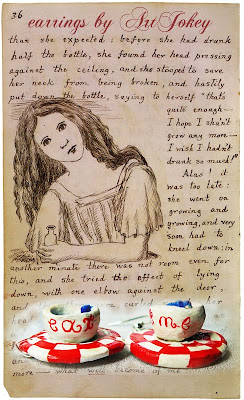 36
earrings by Art Jokey
than she expected: before she had drunk
half the bottle, she found her head pressing
against the ceiling, and she stooped to save
her neck from being broken, and hastily
put down the bottle, saying to herself "that's
quite enough—
I hope I shan't
grow any more—
I wish I hadn't
drunk so much!"
Alas! it
was too late:
she went on
growing and
growing, and very
soon had to
kneel down: in
another minute there was not room even for
this, and she tried the effect of lying
down, with one elbow against the door,
and
eat me
more— what will become of me